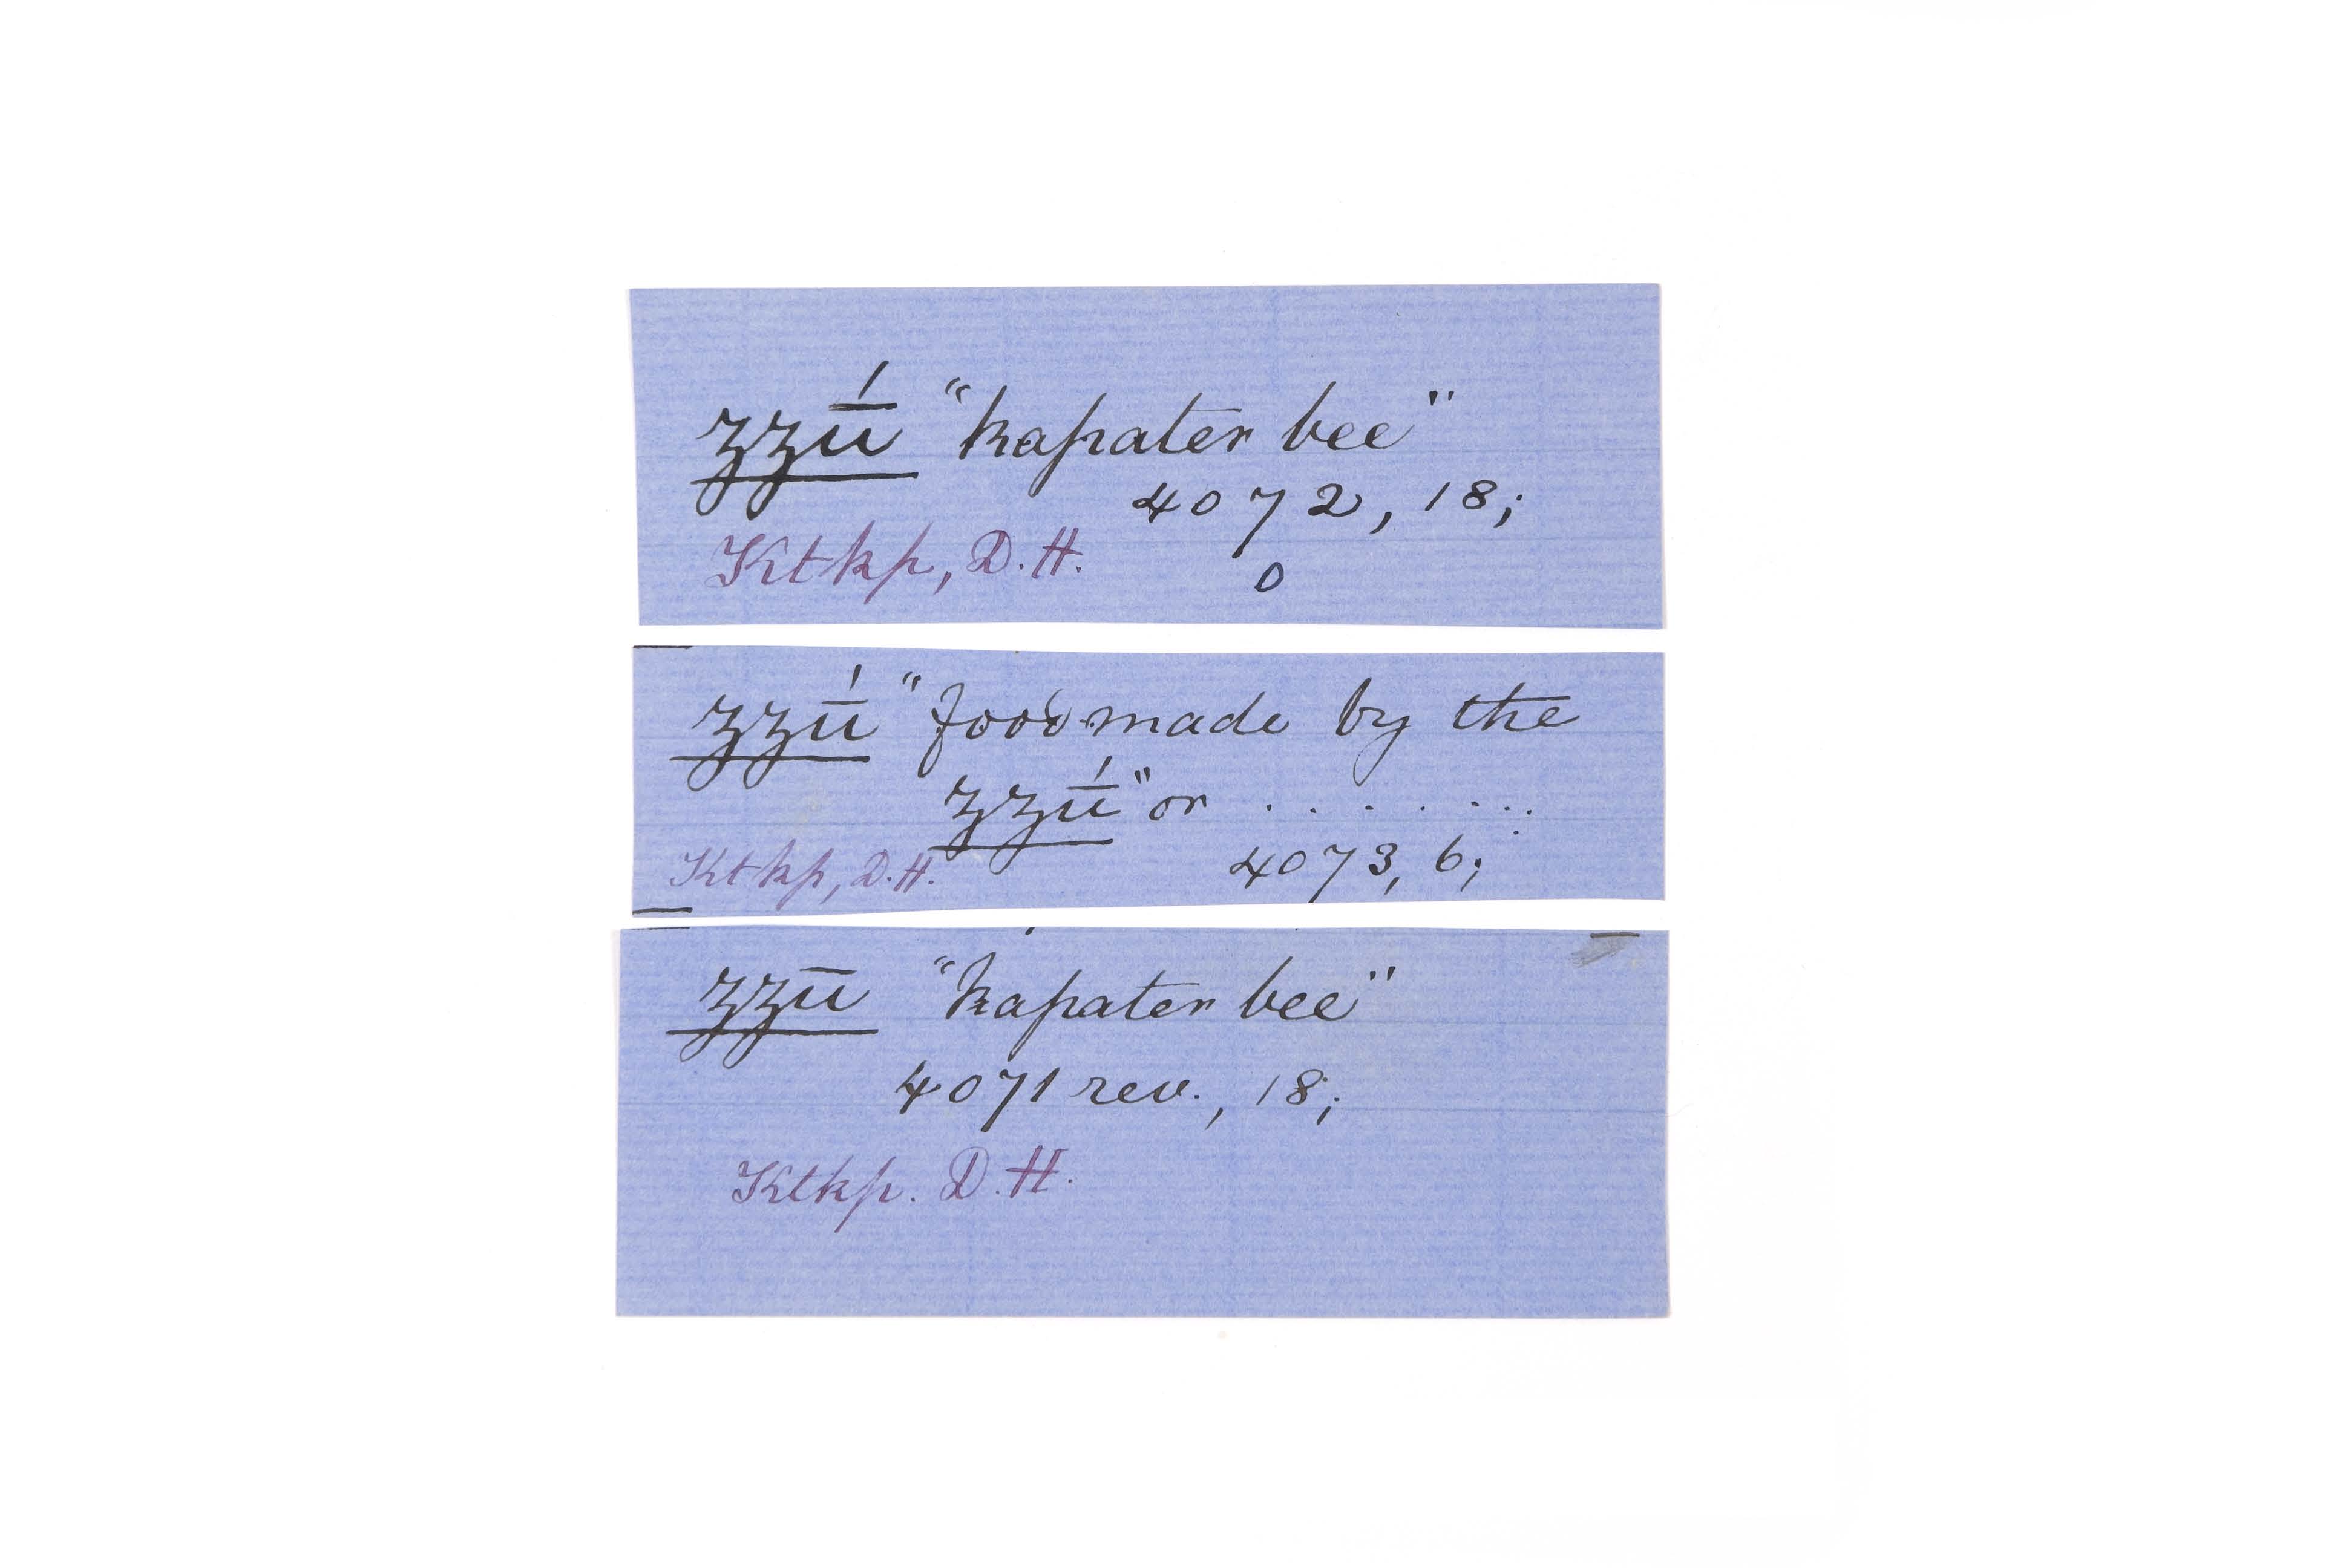 zzū́ "kapater bee"
4072, 18;
Ktkp, D.H. 0
zzū́ "food made by the
zzū́" or . . . . . . . .
Ktkp, D.H. 4073, 6;
zzū "kapater bee"
4071 rev., 18;
Ktkp. D.H.